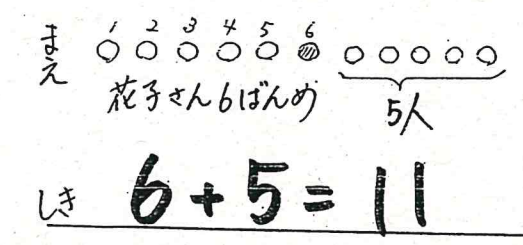 1 2 3 4 5 6
まえ
花子さん6ばんめ
5人
しき 6+5=11